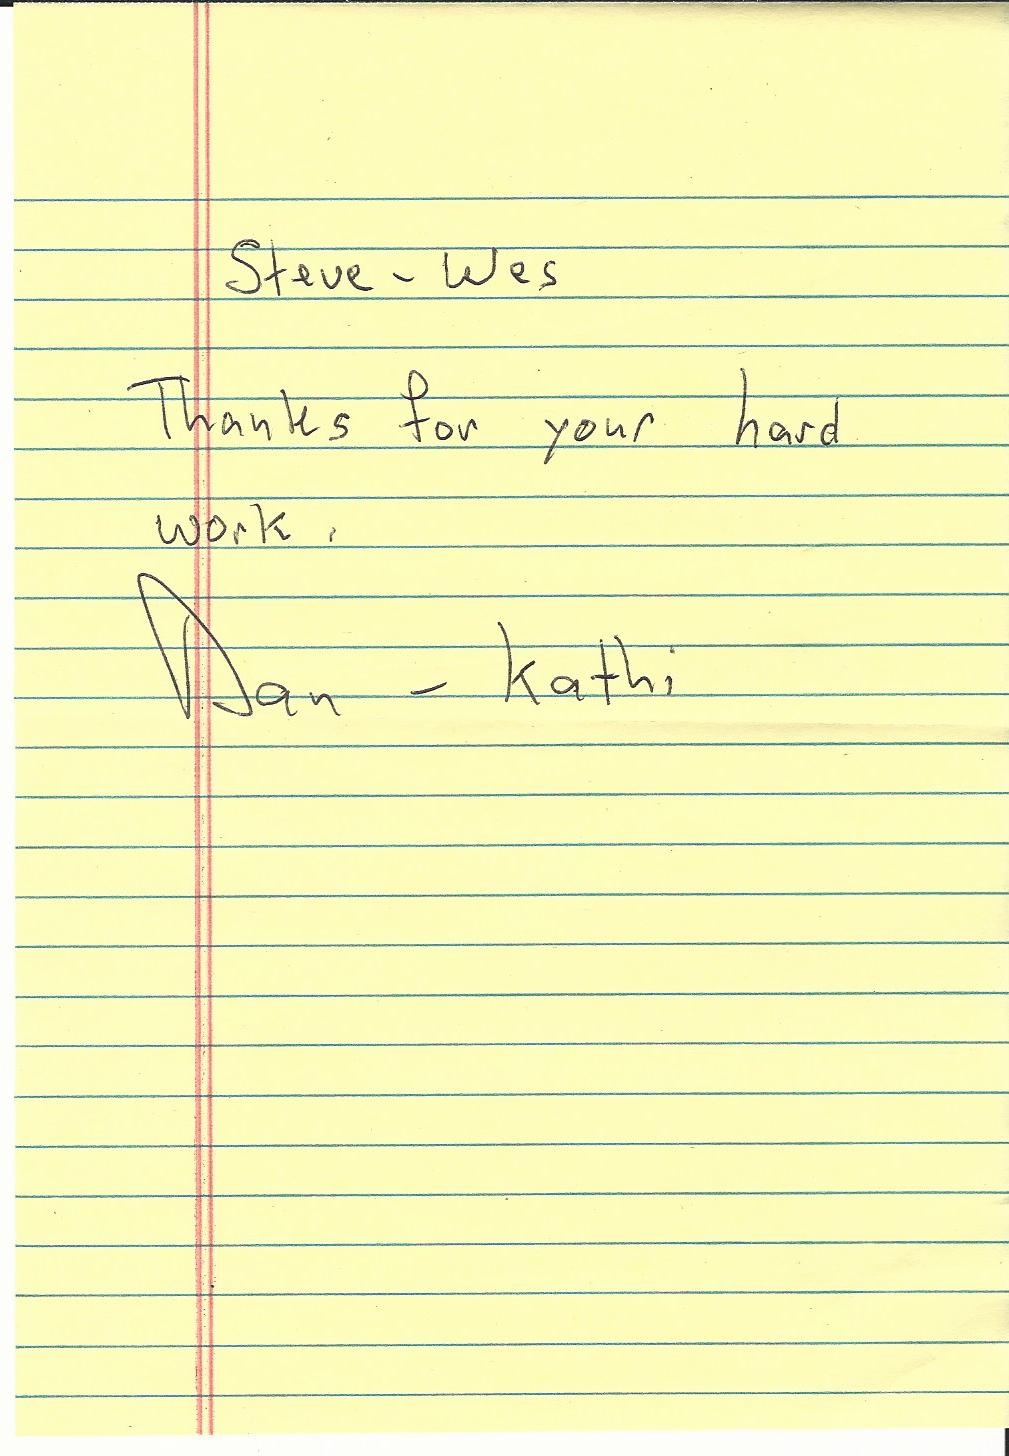 Steve - Wes
Thanks for your hard
work.
Dan - Kathi